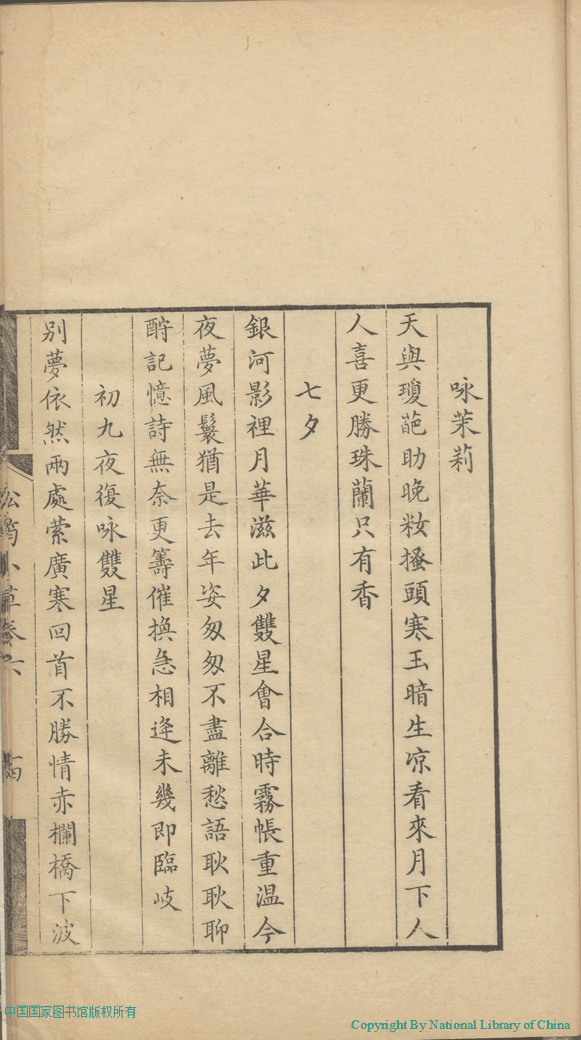 咏茉莉
天與瓊葩助晚粧搔頭寒玉暗生凉看來月下人
人喜更勝珠蘭只有香
七夕
銀河影裡月華滋此夕雙星會合時霧帳重温今
夜夢風鬟猶是去年姿匆匆不盡離愁語耿耿聊
酧記憶詩無奈更籌催換急相逢未幾即臨岐
初九夜復咏雙星
別夢依然兩處縈廣寒回首不勝情赤欄橋下波
小草卷六
中国国家图书馆版权所有
Copyright By National Library of China